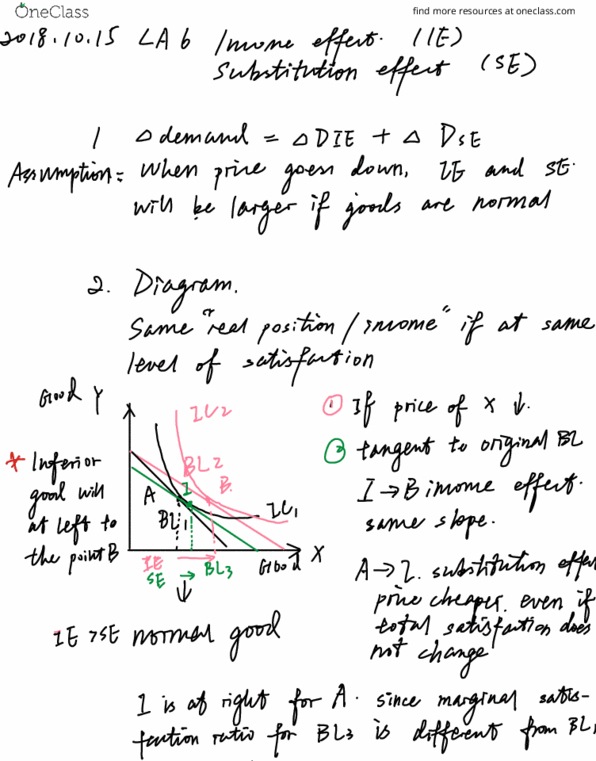 OneClass
find more resources at oneclass.com
2018.10.15 LA 6 Income effect. (IE)
Substitution effect (SE)
1 △ demand = △ DIE + △ DSE
Assumption: When price goes down, IE and SE
will be larger if goods are normal
2. Diagram.
Same "real position / income" if at same
level of satisfaction
Good Y
IC2
BL2
B.
I
A
BL1
IC1
X
Good
IE
SE → BL3
* Inferior
good will
at left to
the point B
① If price of X ↓.
② tangent to original BL
I → B income effect.
same slope.
A → I. substitution effec
price cheaper. even if
total satisfaction does
not change
IE > SE normal good
I is at right for A. since marginal satis-
faction ratio for BL3 is different from BL1